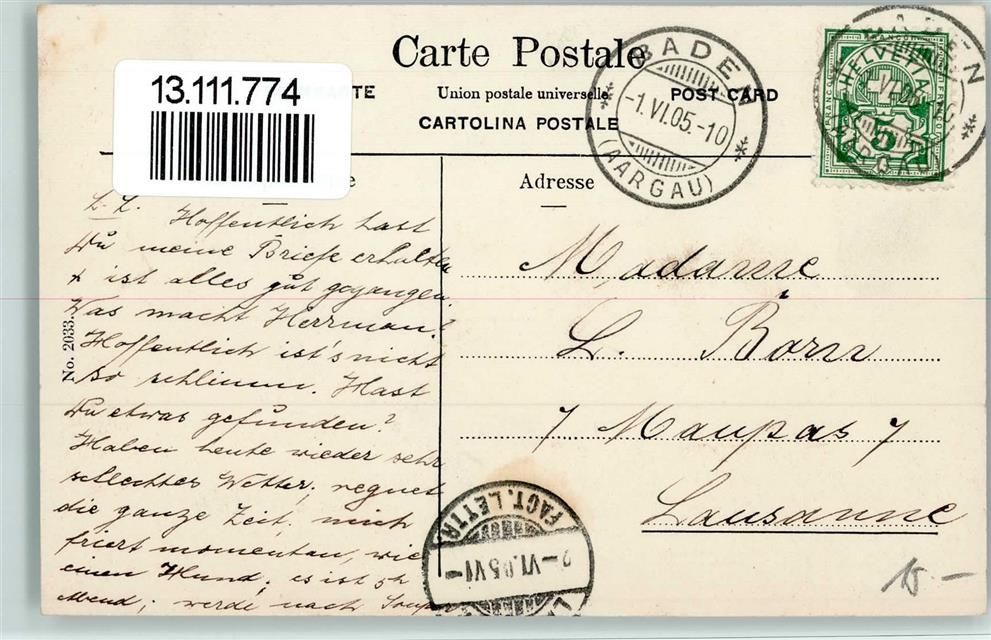 Carte Postale
13.111.774
TE
Union postale universelle
POST CARD
CARTOLINA POSTALE
BADEN
-1.VI.05.-10
(AARGAU)
HELVETIA
FRANCO
5
Adresse
L. L. Hoffentlich hast
Du meine Briefe erhalten
& ist alles gut gegangen.
Was macht Herrman?
Hoffentlich ist's nicht
so schlimm. Hast
Du etwas gefunden?
Haben heute wieder sehr
schlechtes Wetter; regnet
die ganze Zeit. mich
friert momentan, wie
einen Hund; es ist 5h
Abend; werde nach Souper
No. 2033.
Madame
L. Born
7 Maupas 7
Lausanne
FACT. LETTR.
2-VI.05 VI-
15.-